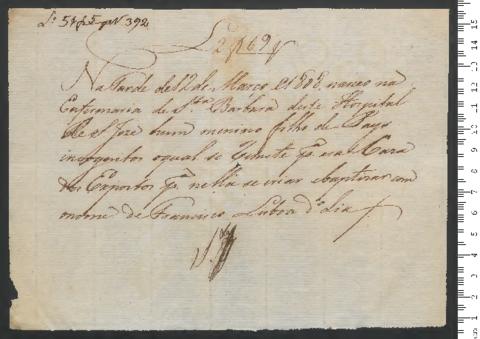 L.º 5 f 5 nº 392
L 2 f 69 v
Na tarde de 12 de Março de 1805, nasceo na
Enfermaria de Sta Barbara deste Hospital
de S. Joze hum menino filho de Pays
incognitos o qual se remete pª essa Caza
dos Expostos pª nella se criar e baptizar com
o nome de Francisco Lisboa